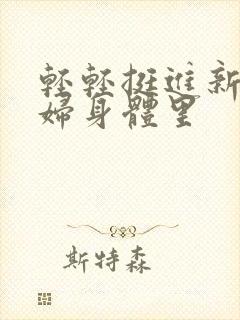 輕輕挺進新
婦身體里
斯特森